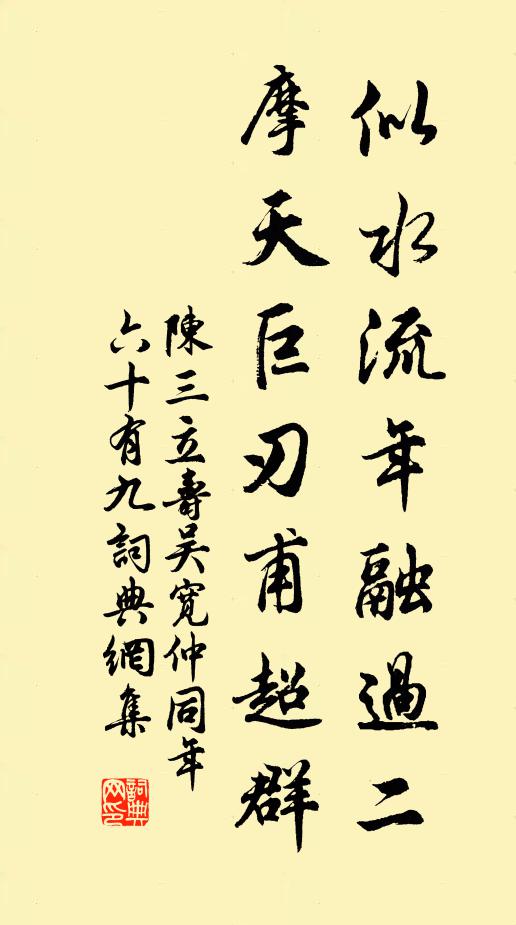 似水流年融過二
摩天巨刃甫超群
陳三立壽吴寬仲同年
六十有九詞典網集
詞典
网印